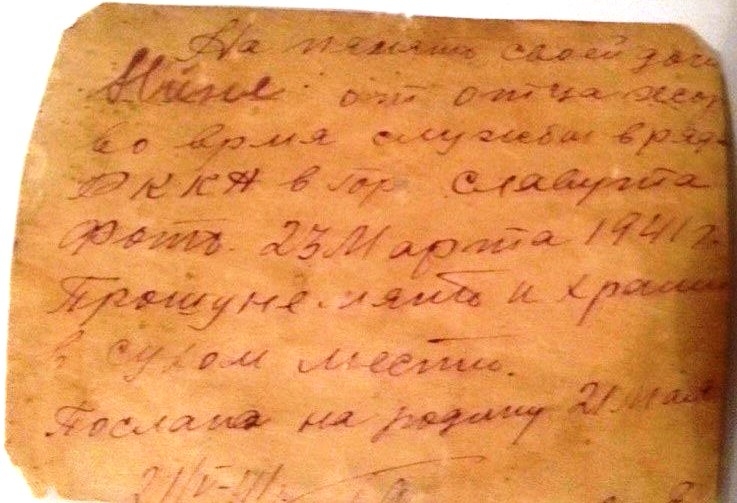 На память своей доч
Нине от отца
во врмя службы в ряд
РККА в гор Славута
Фото. 23 Марта 1941 г.
Прошу не мять и храни
в сухом месте.
Послано на родину 21 мая